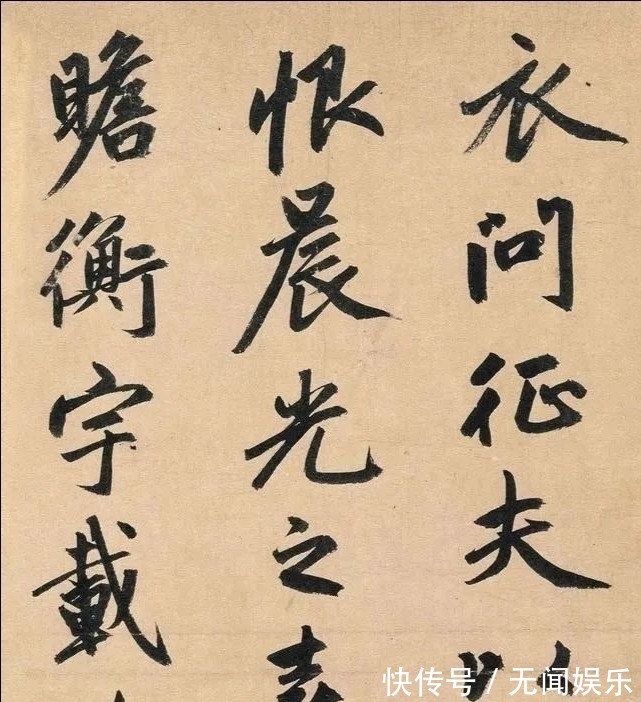 衣问征夫
恨晨光之
瞻衡宇載
快传号/无闻娱乐